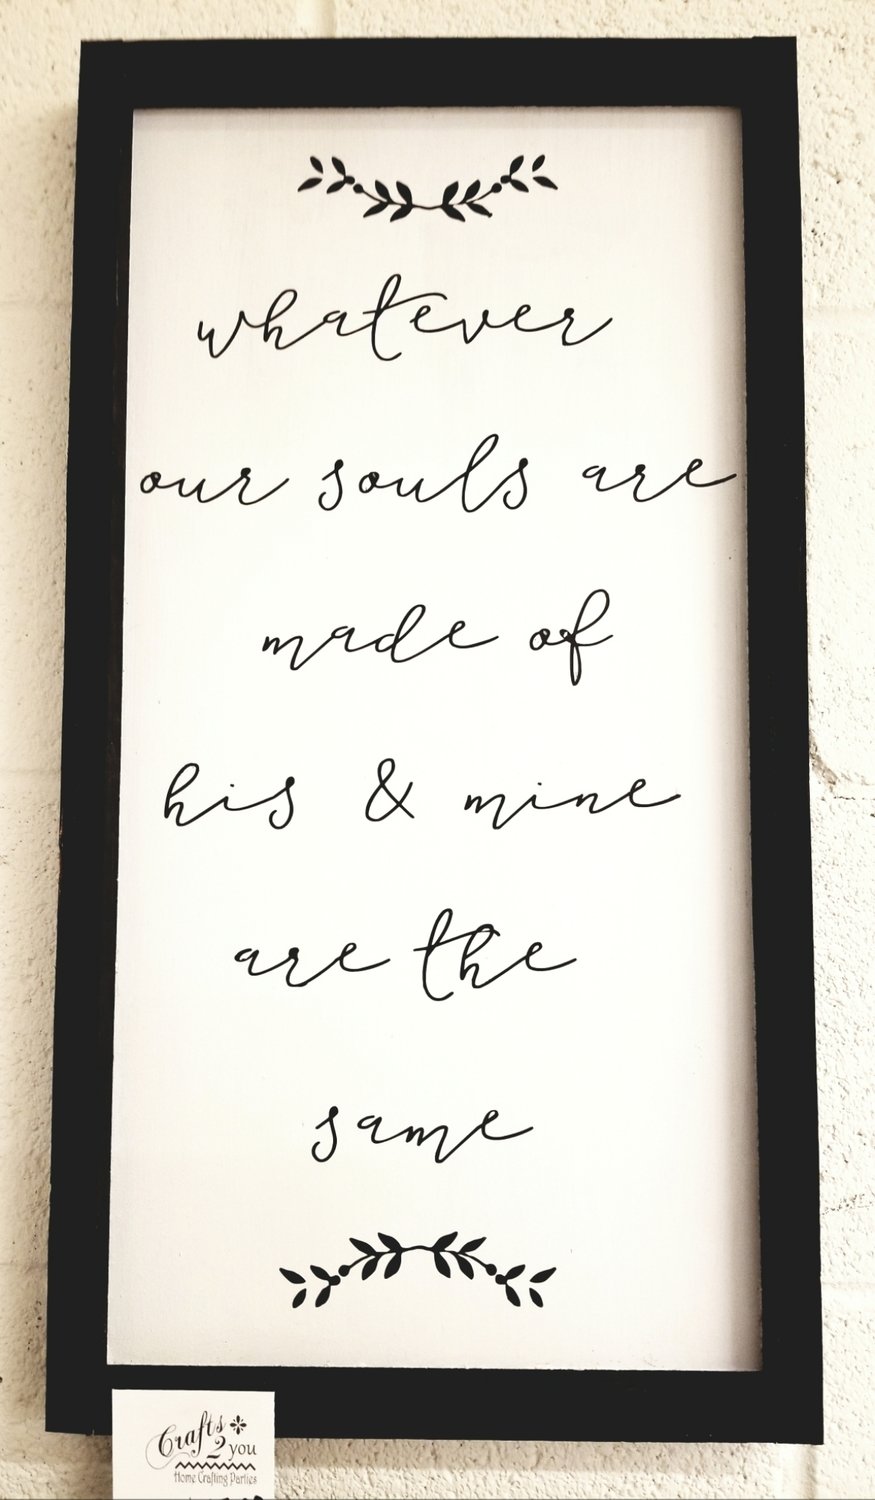 whatever
our souls are
made of
his & mine
are the
same
Crafts
2 you
Home Crafting Parties